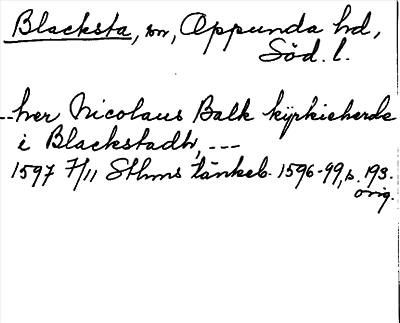 Blacksta, sn, Oppunda hd,
Söd. l.
--her Nicolaus Balk kyrkieherde
i Blackstadh, ---
1597 7/11 Sthms tänkeb. 1596-99, s. 193.
orig.